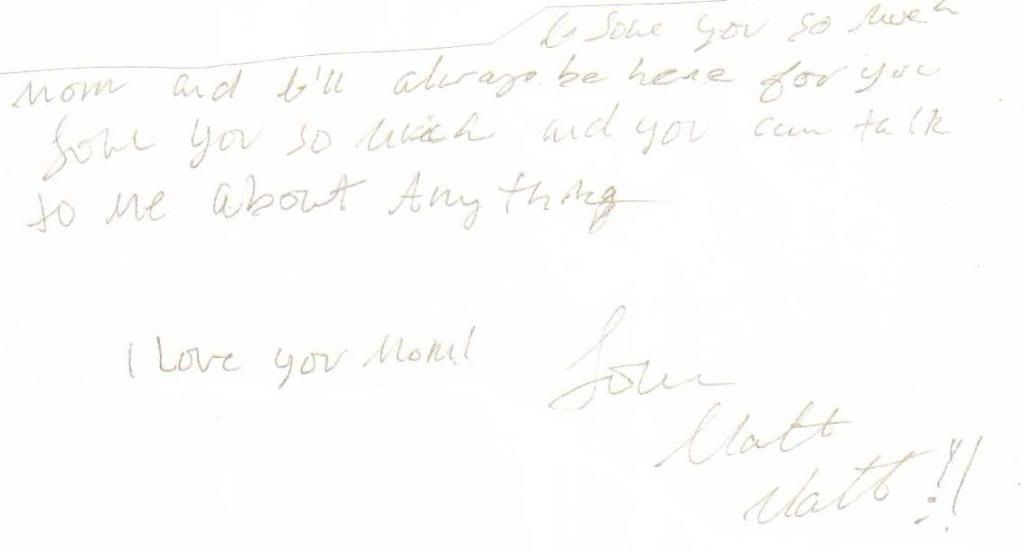 I love you so much
Mom and I'll always be here for you
Love you so much and you can talk
to me about Anything
I Love you Mom!
Love
Matt
Matt!!